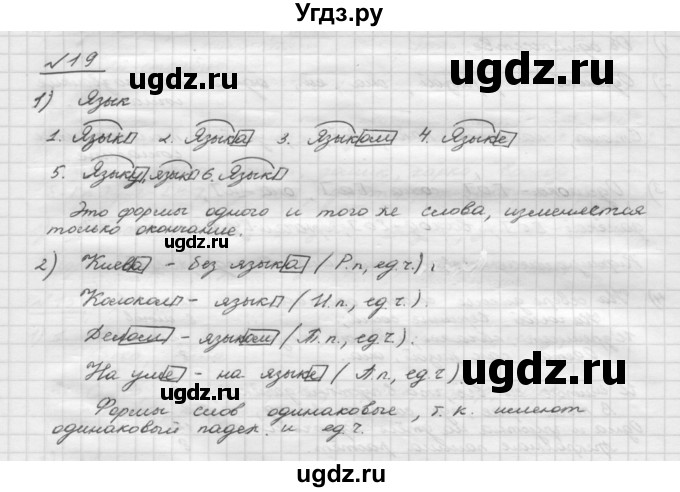 Угдз.ру
№19
ugdz.ru ugdz.ru
1) Язык
1. Язык 2. Языка 3. Языком 4. Языке
5. Языку, язык 6. Язык
Это формы одного и того же слова, изменяется
только окончание.
ugdz.ru
2) Киева - без языка (Р.п., ед.ч.),
Колокол - язык (И.п., ед.ч.).
Делом - языком (Т.п., ед.ч.).
ugdz.ru
На уме - на языке (П.п., ед.ч.)
ugdz.ru
Формы слов одинаковые, т.к. имеют
одинаковый падеж. и ед.ч.
ugdz.ru